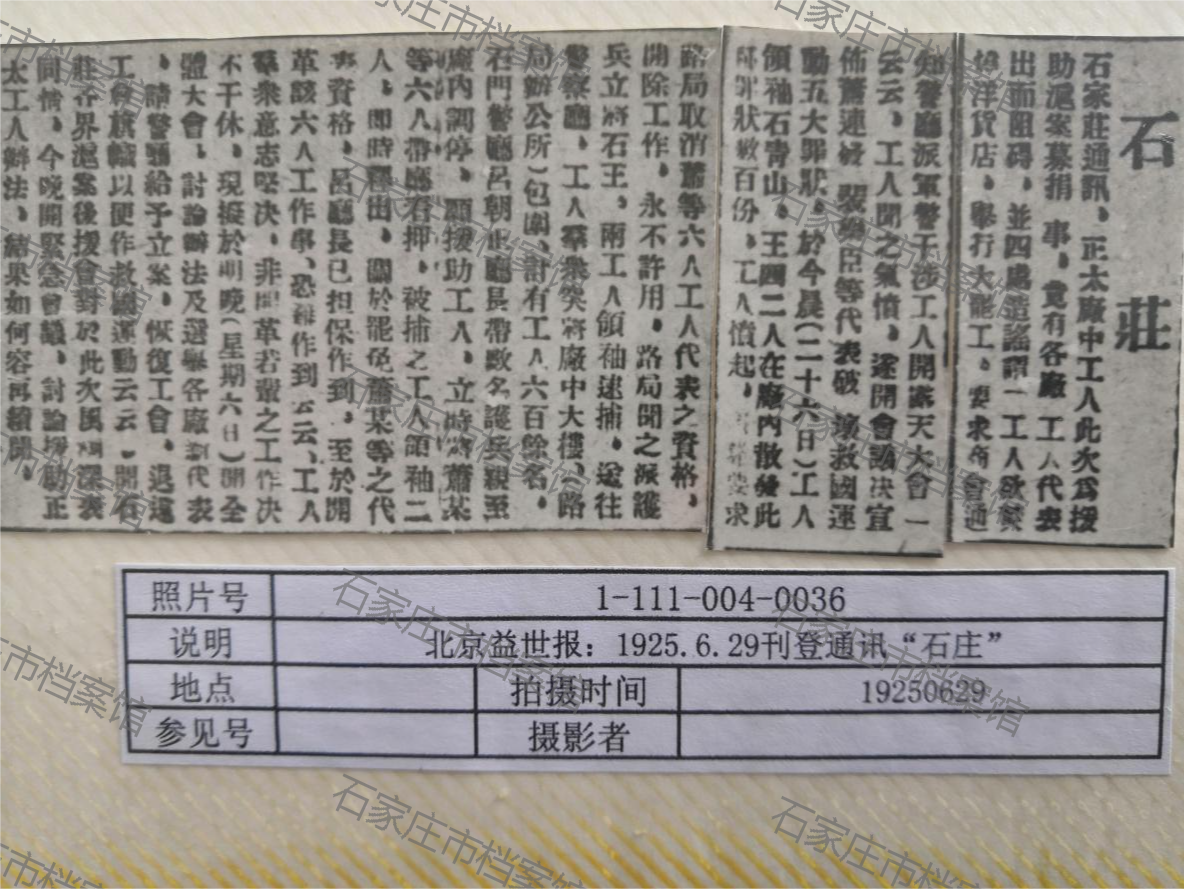 石莊
石家莊通訊、正太廠中工人此次爲援
助滬案募捐 事、竟有各廠 工人代表
出而阻碍、並四處造謠謂 工人欲焚
洋貨店、舉行大罷工、要求商會通
知警廳派軍警干涉工人開露天大會一
云云、工人聞之氣憤、遂開會議决宜
佈蕭連 裴 臣等代表破 壞救國運
動五大罪狀、於今晨(二十六日)工人
領袖石青山、王四二人在廠內散發此
罪狀數百份、工人憤起、 要求
路局取消蕭等六人工人代表之資格、
開除工作、永不許用、路局聞之派護
兵立將石王、兩工人領袖逮捕、送往
警察廳、工人羣衆突將廠中大樓、(路
局辦公所)包圍、計有工人六百餘名、
石門警廳呂朝 廳長帶數名護兵親至
廠內調停、願援助工人、立時將蕭某
等六人帶廳看押、被捕之工人領袖二
人、即時釋出、關於罷免蕭某等之代
表資格、呂廳長已担保作到、至於開
革該六人工作事、恐難作到云云、工人
羣衆意志堅决、非開革若輩之工作决
不干休、現擬於明晚(星期六日)開全
體大會、討論辦法及選舉各廠新代表
、請警廳給予立案、恢復工會、退還
工會旗幟以便作救國運動云云、聞石
莊各界滬案後援會對於此次風潮深表
同情、今晚開緊急會議、討論援助正
太工人辦法、結果如何容再續聞、
照片号 1-111-004-0036
说明 北京益世报：1925.6.29刊登通讯“石庄”
地点 拍摄时间 19250629
参见号 摄影者
石家庄市档案馆